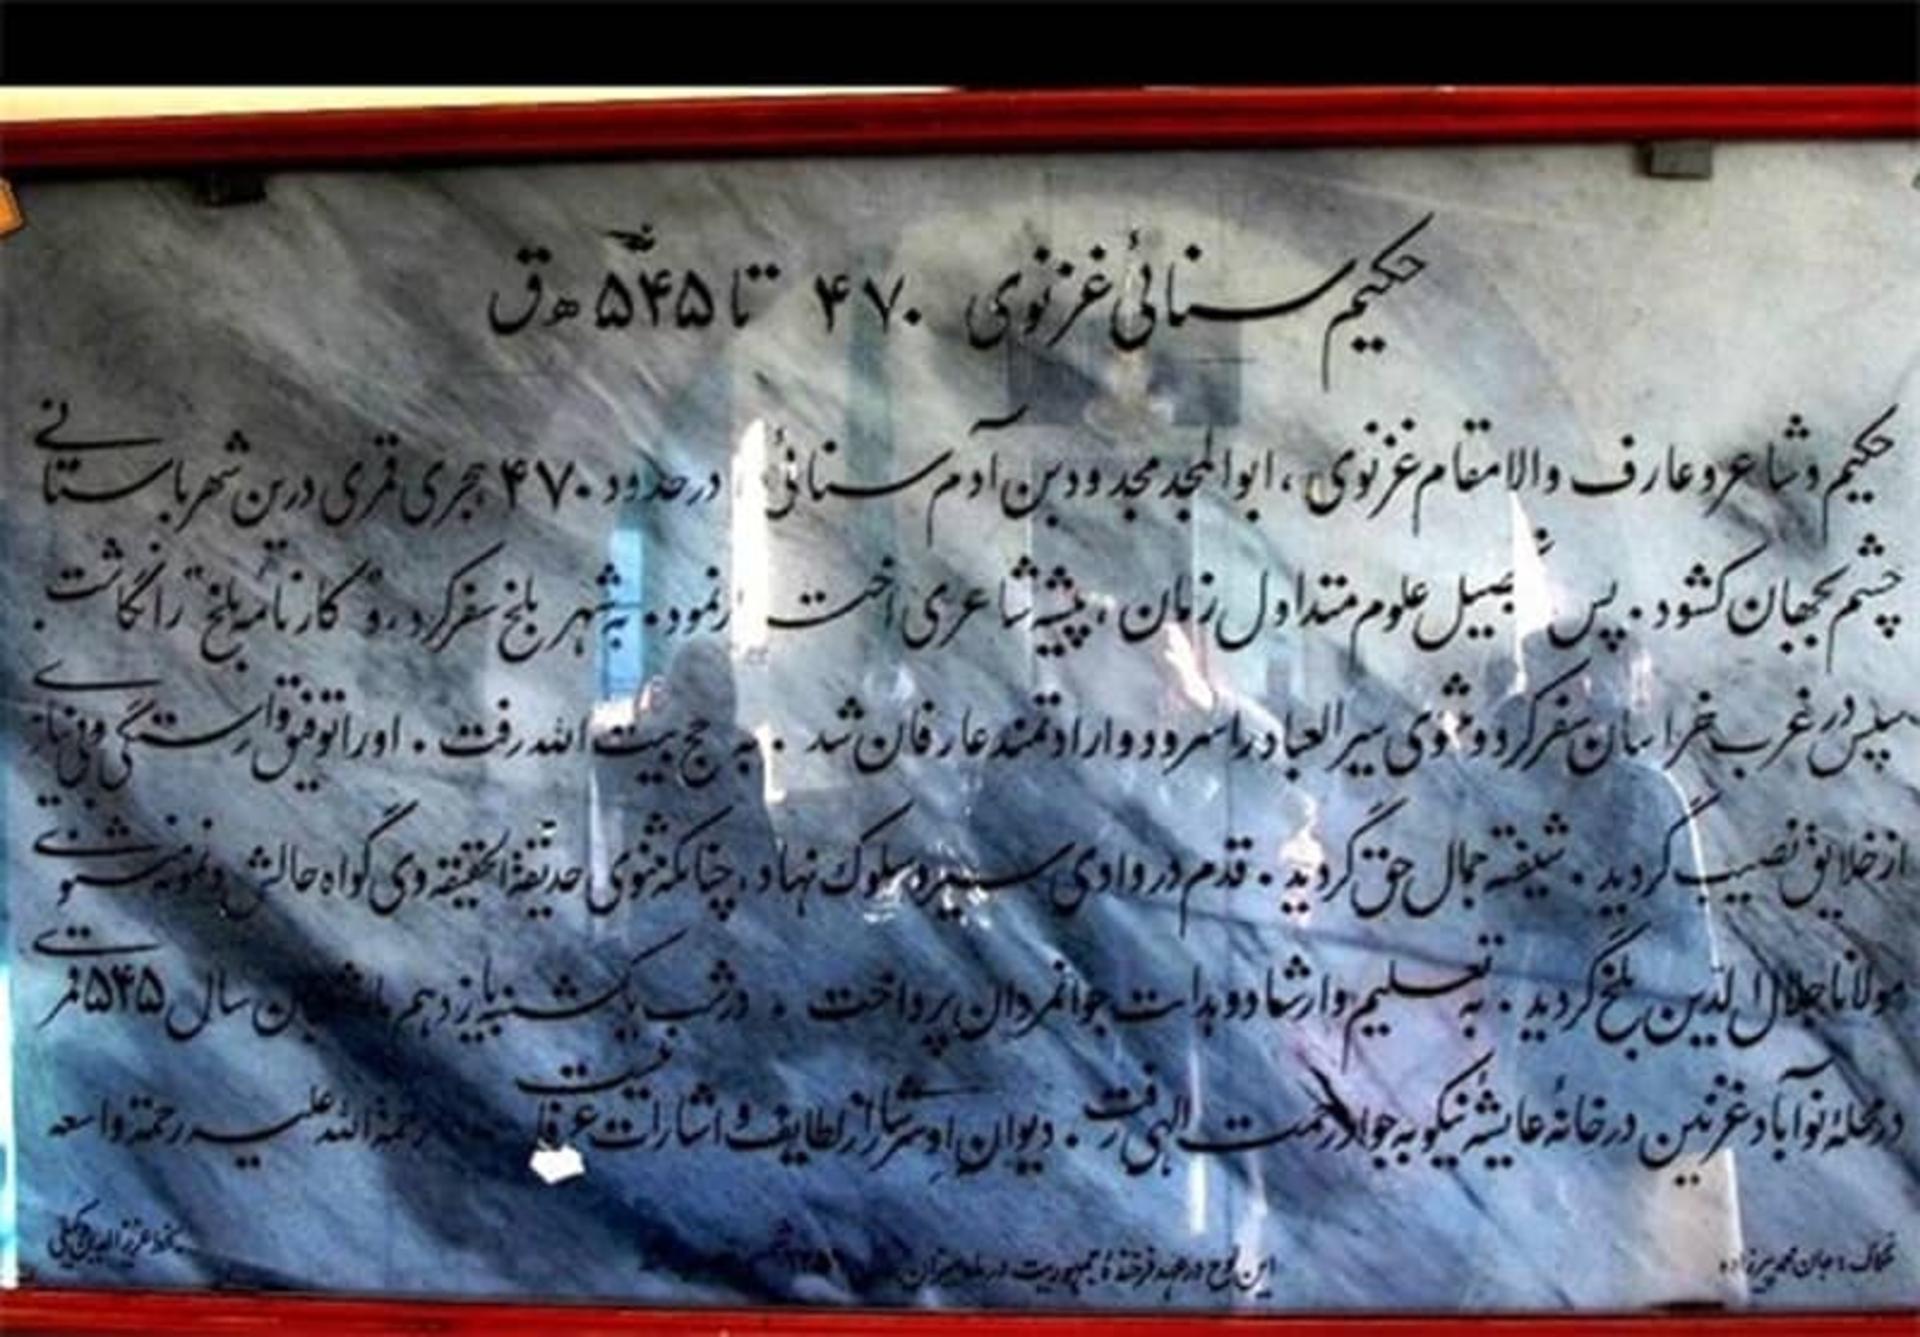 حکیم سنائیٔ غزنوی ۴۷۰ تا ۵۴۵ ھ ق
حکیم و شاعر و عارف والامقام غزنوی، ابوالمجد مجدود بن آدم سنائیٔ در حدود ۴۷۰ هجری قمری درین شهر باستانی
چشم بجهان کشود. پس علوم متداول زمان، پیشه شاعری نمود. به شهر بلخ سفر کرد، و "کارنامه بلخ" را نگاشت.
سپس در غرب خراسان سفر کرد و مثنوی سیر العباد را سرود و ارادتمند عارفان شد. به حج بیت الله رفت. او را توفیق وارستگی و بی نیازی
از خلایق نصیب گردید. شیفته جمال حق گردید. قدم در وادی سیر و سلوک نهاد، چنانکه مثنوی حدیقة الحقیقه وی گواه حالش و نمونه مثنوی
مولانا جلال الدین بلخ گردید. به تعلیم و ارشاد و هدایت جوانمردان پرداخت. در شب یکشنبه یازدهم سال ۵۴۵ قمری
در محلهٔ نوآباد غزنین در خانهٔ عایشهٔ نیکو به جوار رحمت الهی رفت. دیوان او سرشار از لطایف و اشارات عرفانیست رحمة الله علیه رحمة واسعه
حکاک: جان محمد پیرزاده
این لوح در عهد فرخندهٔ جمهوریت در ماه میزان
عزیز الدین وکیلی